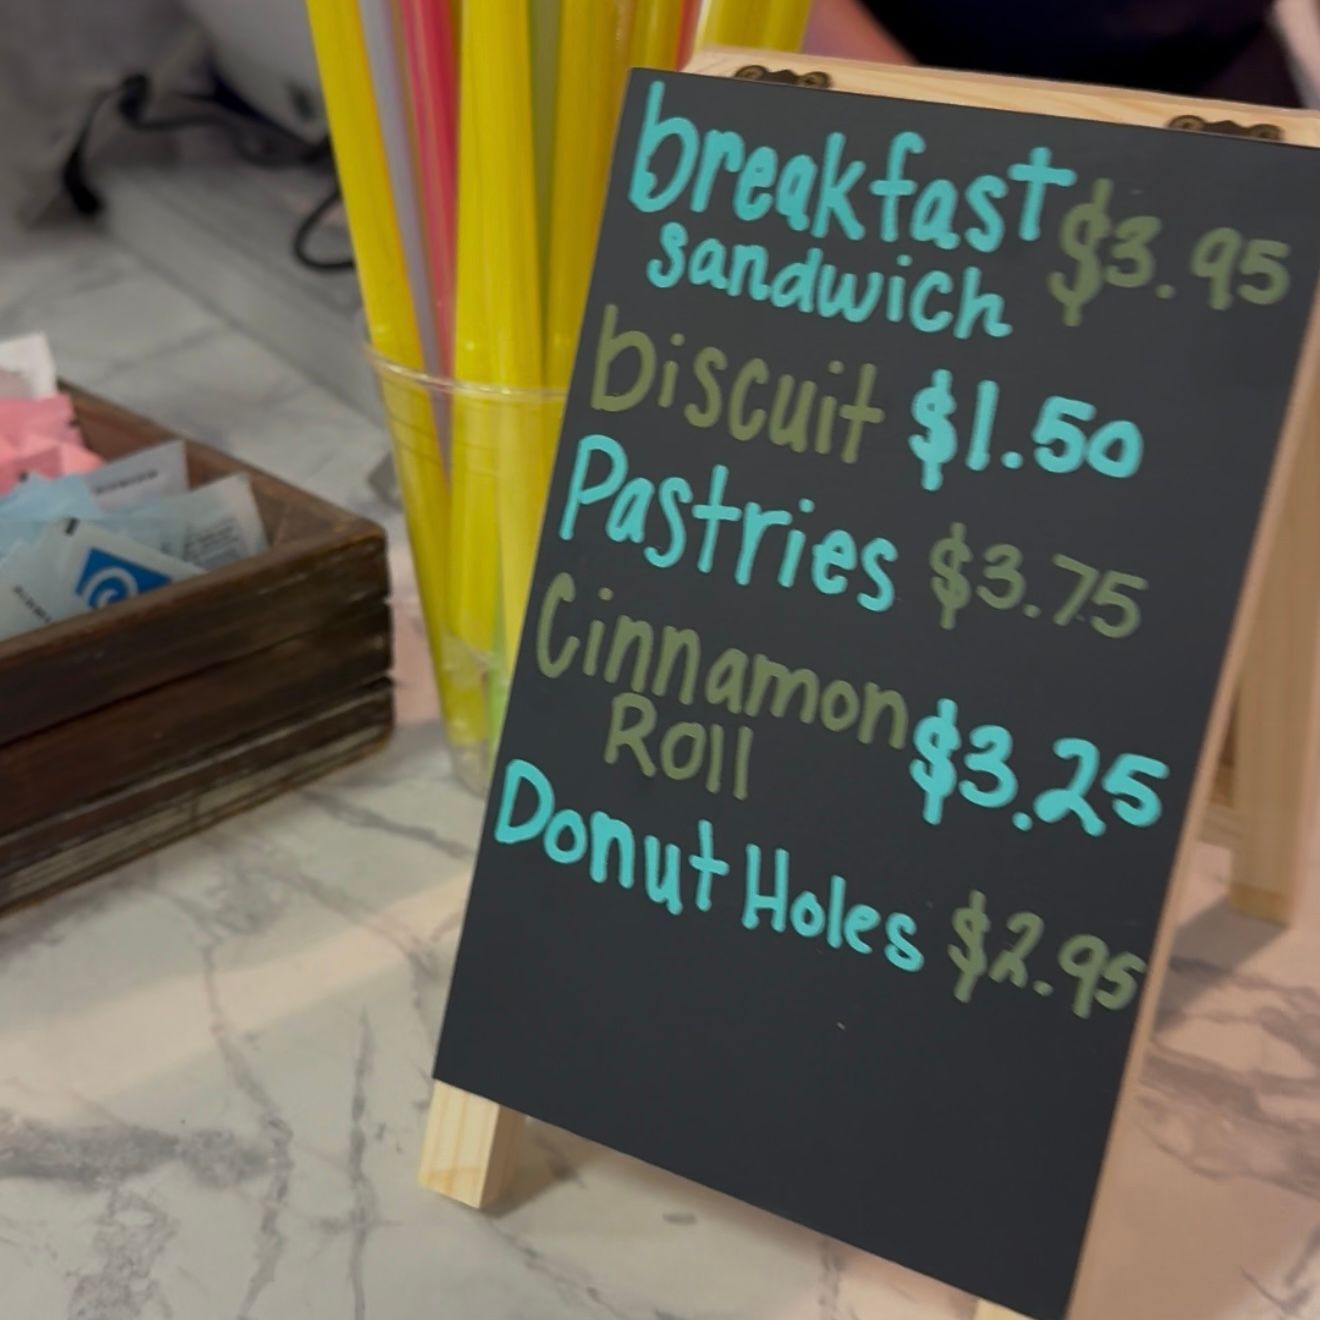 breakfast $3.95
sandwich
biscuit $1.50
Pastries $3.75
Cinnamon $3.25
Roll
Donut Holes $2.95